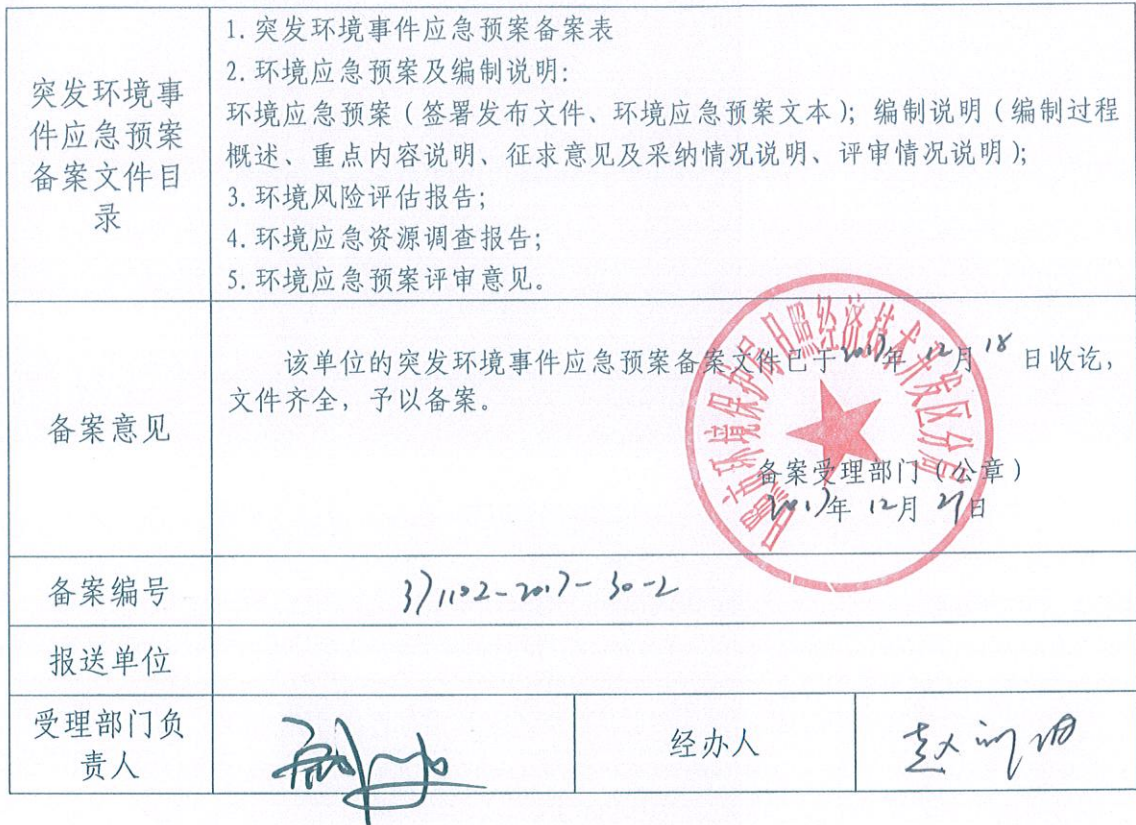 突发环境事
件应急预案
备案文件目
录
1. 突发环境事件应急预案备案表
2. 环境应急预案及编制说明:
环境应急预案（签署发布文件、环境应急预案文本）；编制说明（编制过程
概述、重点内容说明、征求意见及采纳情况说明、评审情况说明）；
3. 环境风险评估报告；
4. 环境应急资源调查报告；
5. 环境应急预案评审意见。
备案意见
该单位的突发环境事件应急预案备案文件已于2017年 12月 18 日收讫，
文件齐全，予以备案。
日照市环境保护局日照经济技术开发区分局
备案受理部门（公章）
2017年 12月 日
备案编号
371102-2017-30-2
报送单位
受理部门负
责人
经办人
赵